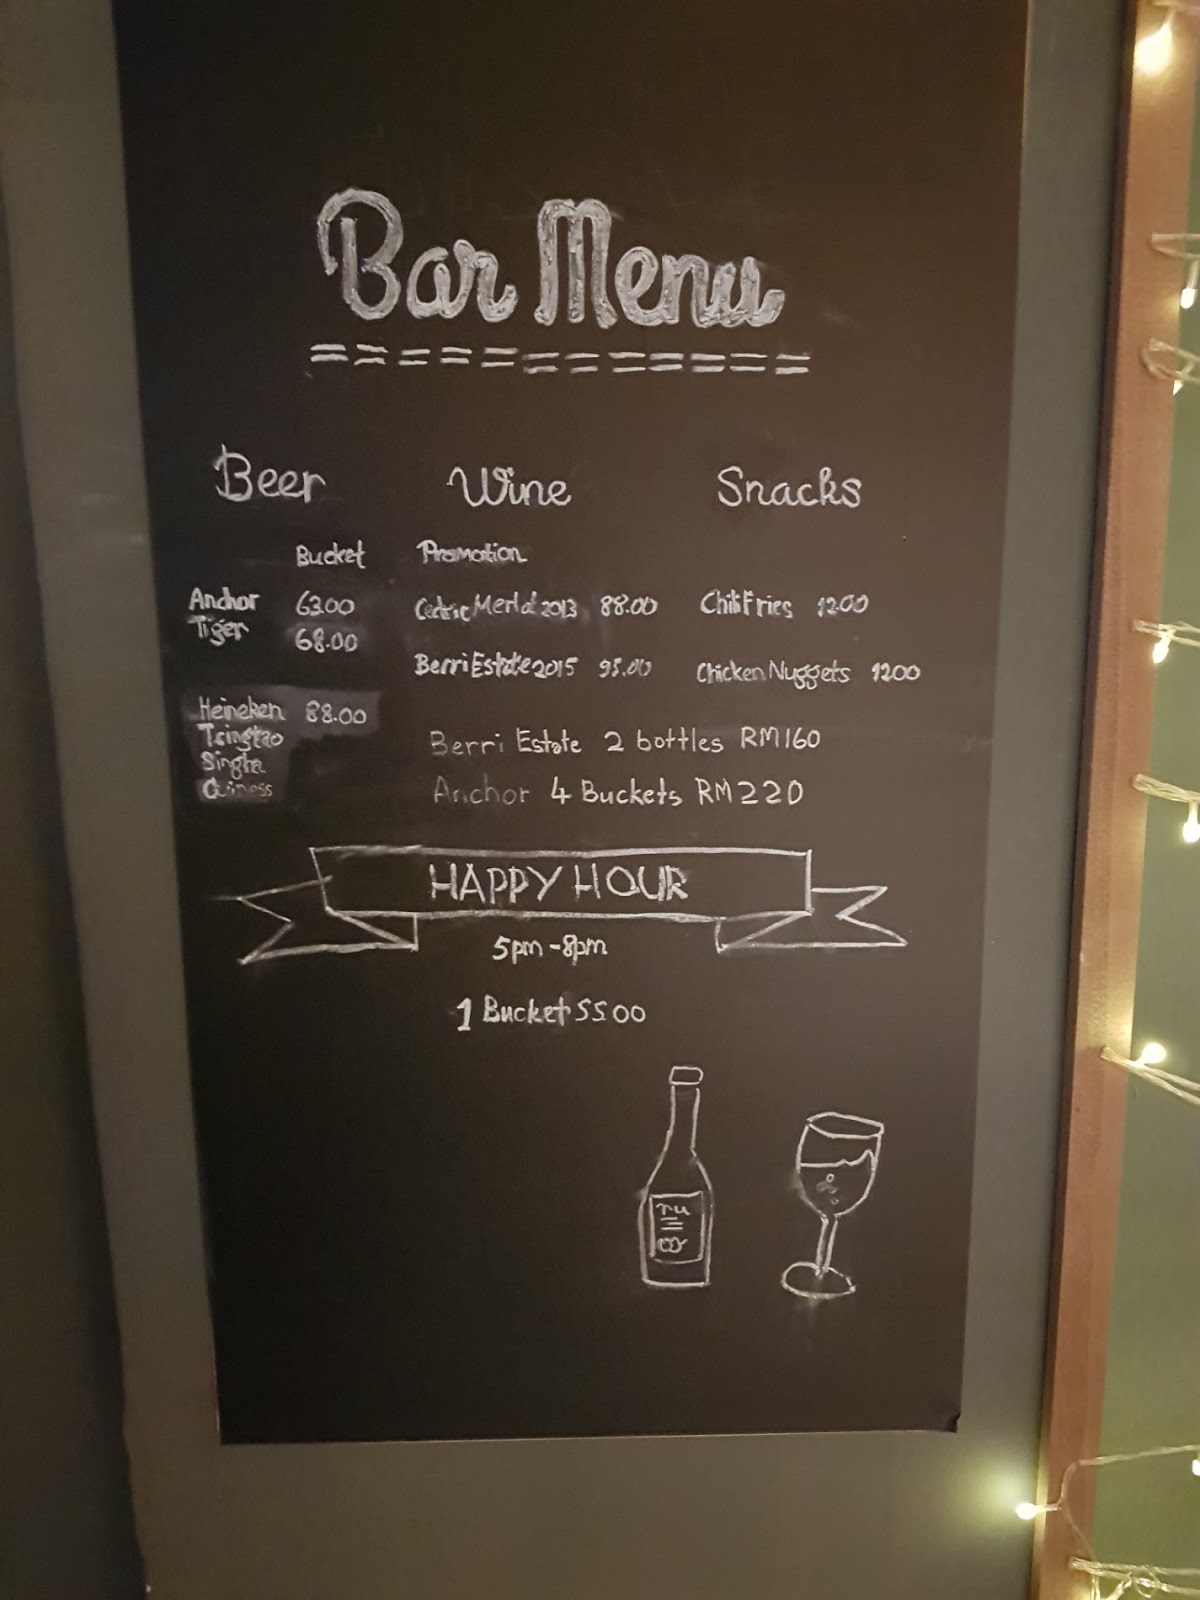 Bar Menu
Beer
Bucket
Anchor 63.00
Tiger 68.00
Heineken 88.00
Tsingtao
Singha
Guiness
Wine
Promotion
Cedric Merlot 2013 88.00
Berri Estate 2015 95.00
Snacks
Chili Fries 12.00
Chicken Nuggets 1200
Berri Estate 2 bottles RM160
Anchor 4 Buckets RM220
HAPPY HOUR
5pm-8pm
1 Bucket 55.00